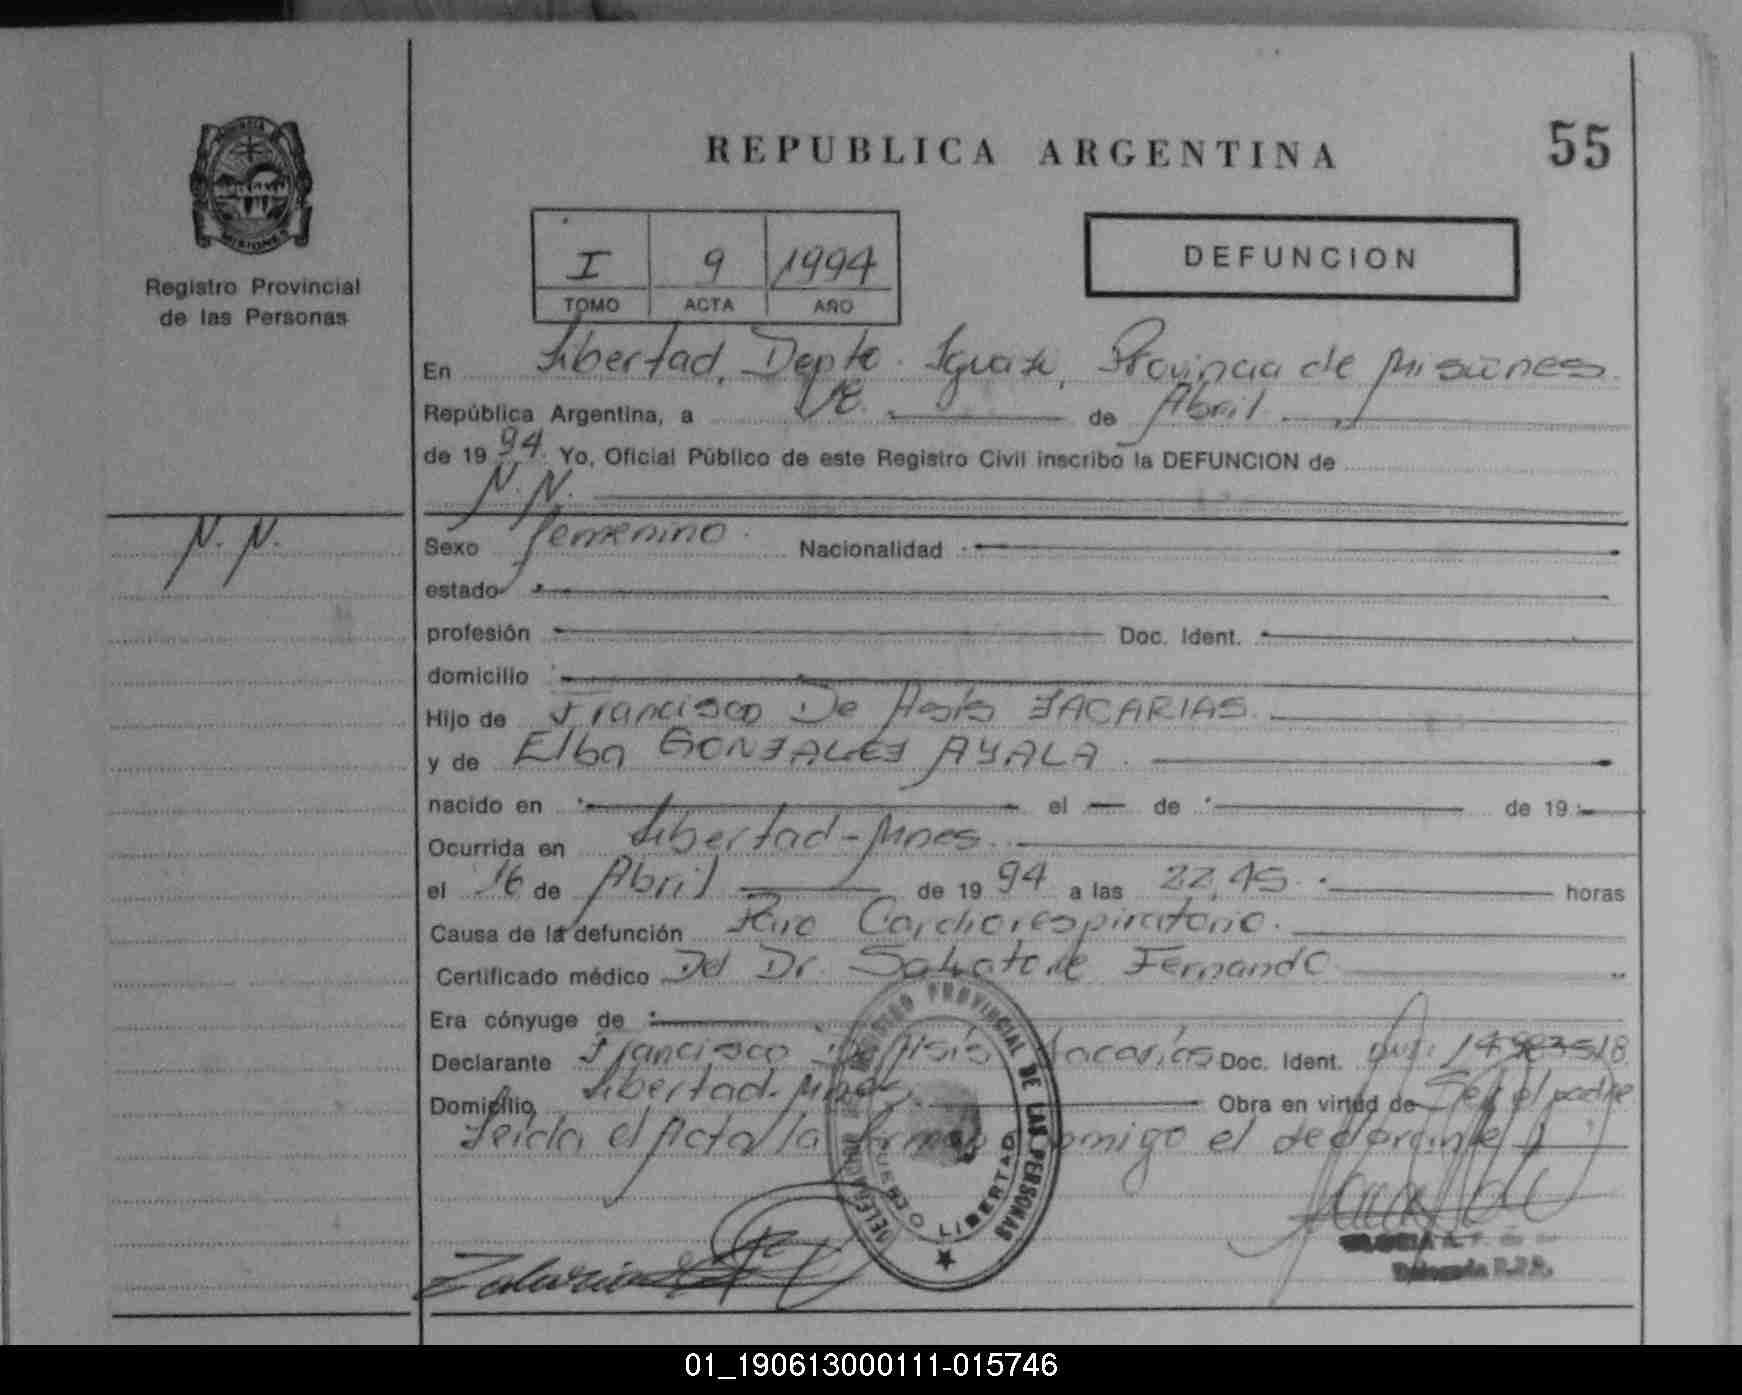 REPUBLICA ARGENTINA
55
PROVINCIA
MISIONES
Registro Provincial
de las Personas
I 9 1994
TOMO ACTA AÑO
DEFUNCION
En Libertad, Depto. Iguazu, Provincia de Misiones
República Argentina, a 18 de Abril
de 1994. Yo, Oficial Público de este Registro Civil inscribo la DEFUNCION de
N.N.
N.N.
Sexo femenino. Nacionalidad
estado
profesión Doc. Ident.
domicilio
Hijo de Francisco De Asis ZACARIAS
y de Elba GONZALEZ AYALA
nacido en el de de 19
Ocurrida en Libertad-Mnes
el 16 de Abril de 1994 a las 22,45 horas
Causa de la defunción Paro Cardiorespiratorio.
Certificado médico Del Dr. Salvatore Fernando
Era cónyuge de
Declarante Francisco Asis Zacarias Doc. Ident.
Domicilio Libertad-Mnes Obra en virtud de Ser el padre
Leida el Acta la firman conmigo el declarante
DELEGACION REGISTRO PROVINCIAL DE LAS PERSONAS
PUERTO LIBERTAD
Delegada R.P.P.
01_190613000111-015746